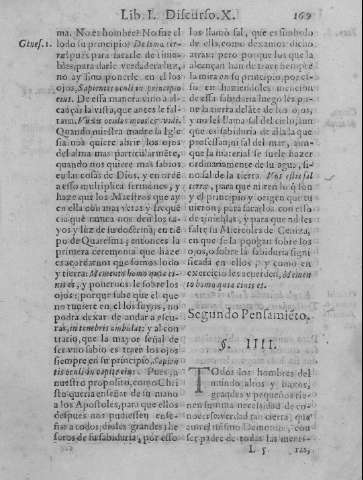 Lib. I. Discurso. X. 169
Genes. 1.
ma. No es hombre? No fue el
lodo su principio? De limo ter-
ræ: pues para sacarle del ti-
mo bles, para verdadera luz,
no ay sino ponerle en el los
ojos, Sapientis oculi in principio
eius. De essa manera vino a al-
cançar la vista, que antes le fal-
taua. Vnxit oculos meos, & vidi.
Quando nuestra madre la Igle
sia nos quiere abrir los ojos
del alma mas particularmẽte,
quando nos quiere mas sabios
en las cosas de Dios, y en ordẽ
a esso multiplica sermones, y
haze que los Maestros que ay
en ella con mas veras y frequẽ
cia que nunca nos den los ra-
yos y luz de su doctrina, en tiẽ
po de Quaresma; entonces la
primera ceremonia que hazẽ
es acordarnos que somos lodo
y tierra: Memento homo quia ci-
nis es, y ponernosle sobre los
ojos: porque sabe que el que
no tuuiere en el los suyos, no
podra dexar de andar a escu-
ras, in tenebris ambulat: y al con
trario, que la mayor señal de
ser vno sabio es traer los ojos
siempre en su principio, Sapien
tis oculi in capite eius. Pues a
nuestro proposito, como Chri
sto queria enseñar de su mano
a los Apostoles, para que ellos
despues nos pudiessen ense-
ñar a todos, deles grandes the
soros de su sabiduria, por esso
los llamò sal, que es simbolo
de ella, como dexamos dicho
atras: pero porque los que la
alcançan han de traer siempre
la mira en su principio, por es-
so en haziendoles mencion
dessa sabiduria luego les pu-
so la tierra delãte de los ojos,
y no les llama sal del cielo, aun
que es sabiduria de alla la que
professan, ni sal del mar, aun-
que la material se suele hazer
ordinariamente de su agua, si-
no sal de la tierra. Vos estis sal
terræ, para que miren lo q̃ son
y el principio y origen que tu
uieron; y para sacarlos con esso
de tinieblas, y para que no les
falte su Miercoles de Ceniza,
en que se la pongan sobre los
ojos, o sobre la sabiduria signi-
ficada en ellos; y como en
exercicio les acuerden, Memen
to homo quia cinis es.
Segundo Pensamiẽto.
§. IIII.
TOdos los hombres del
mundo altos y baxos,
grandes y pequeños tie-
nen suma necessidad de co-
nocer esta verdad tan cierta, que
aun el mismo Demonio, con
ser padre de todas las menti-
L 5 ras,